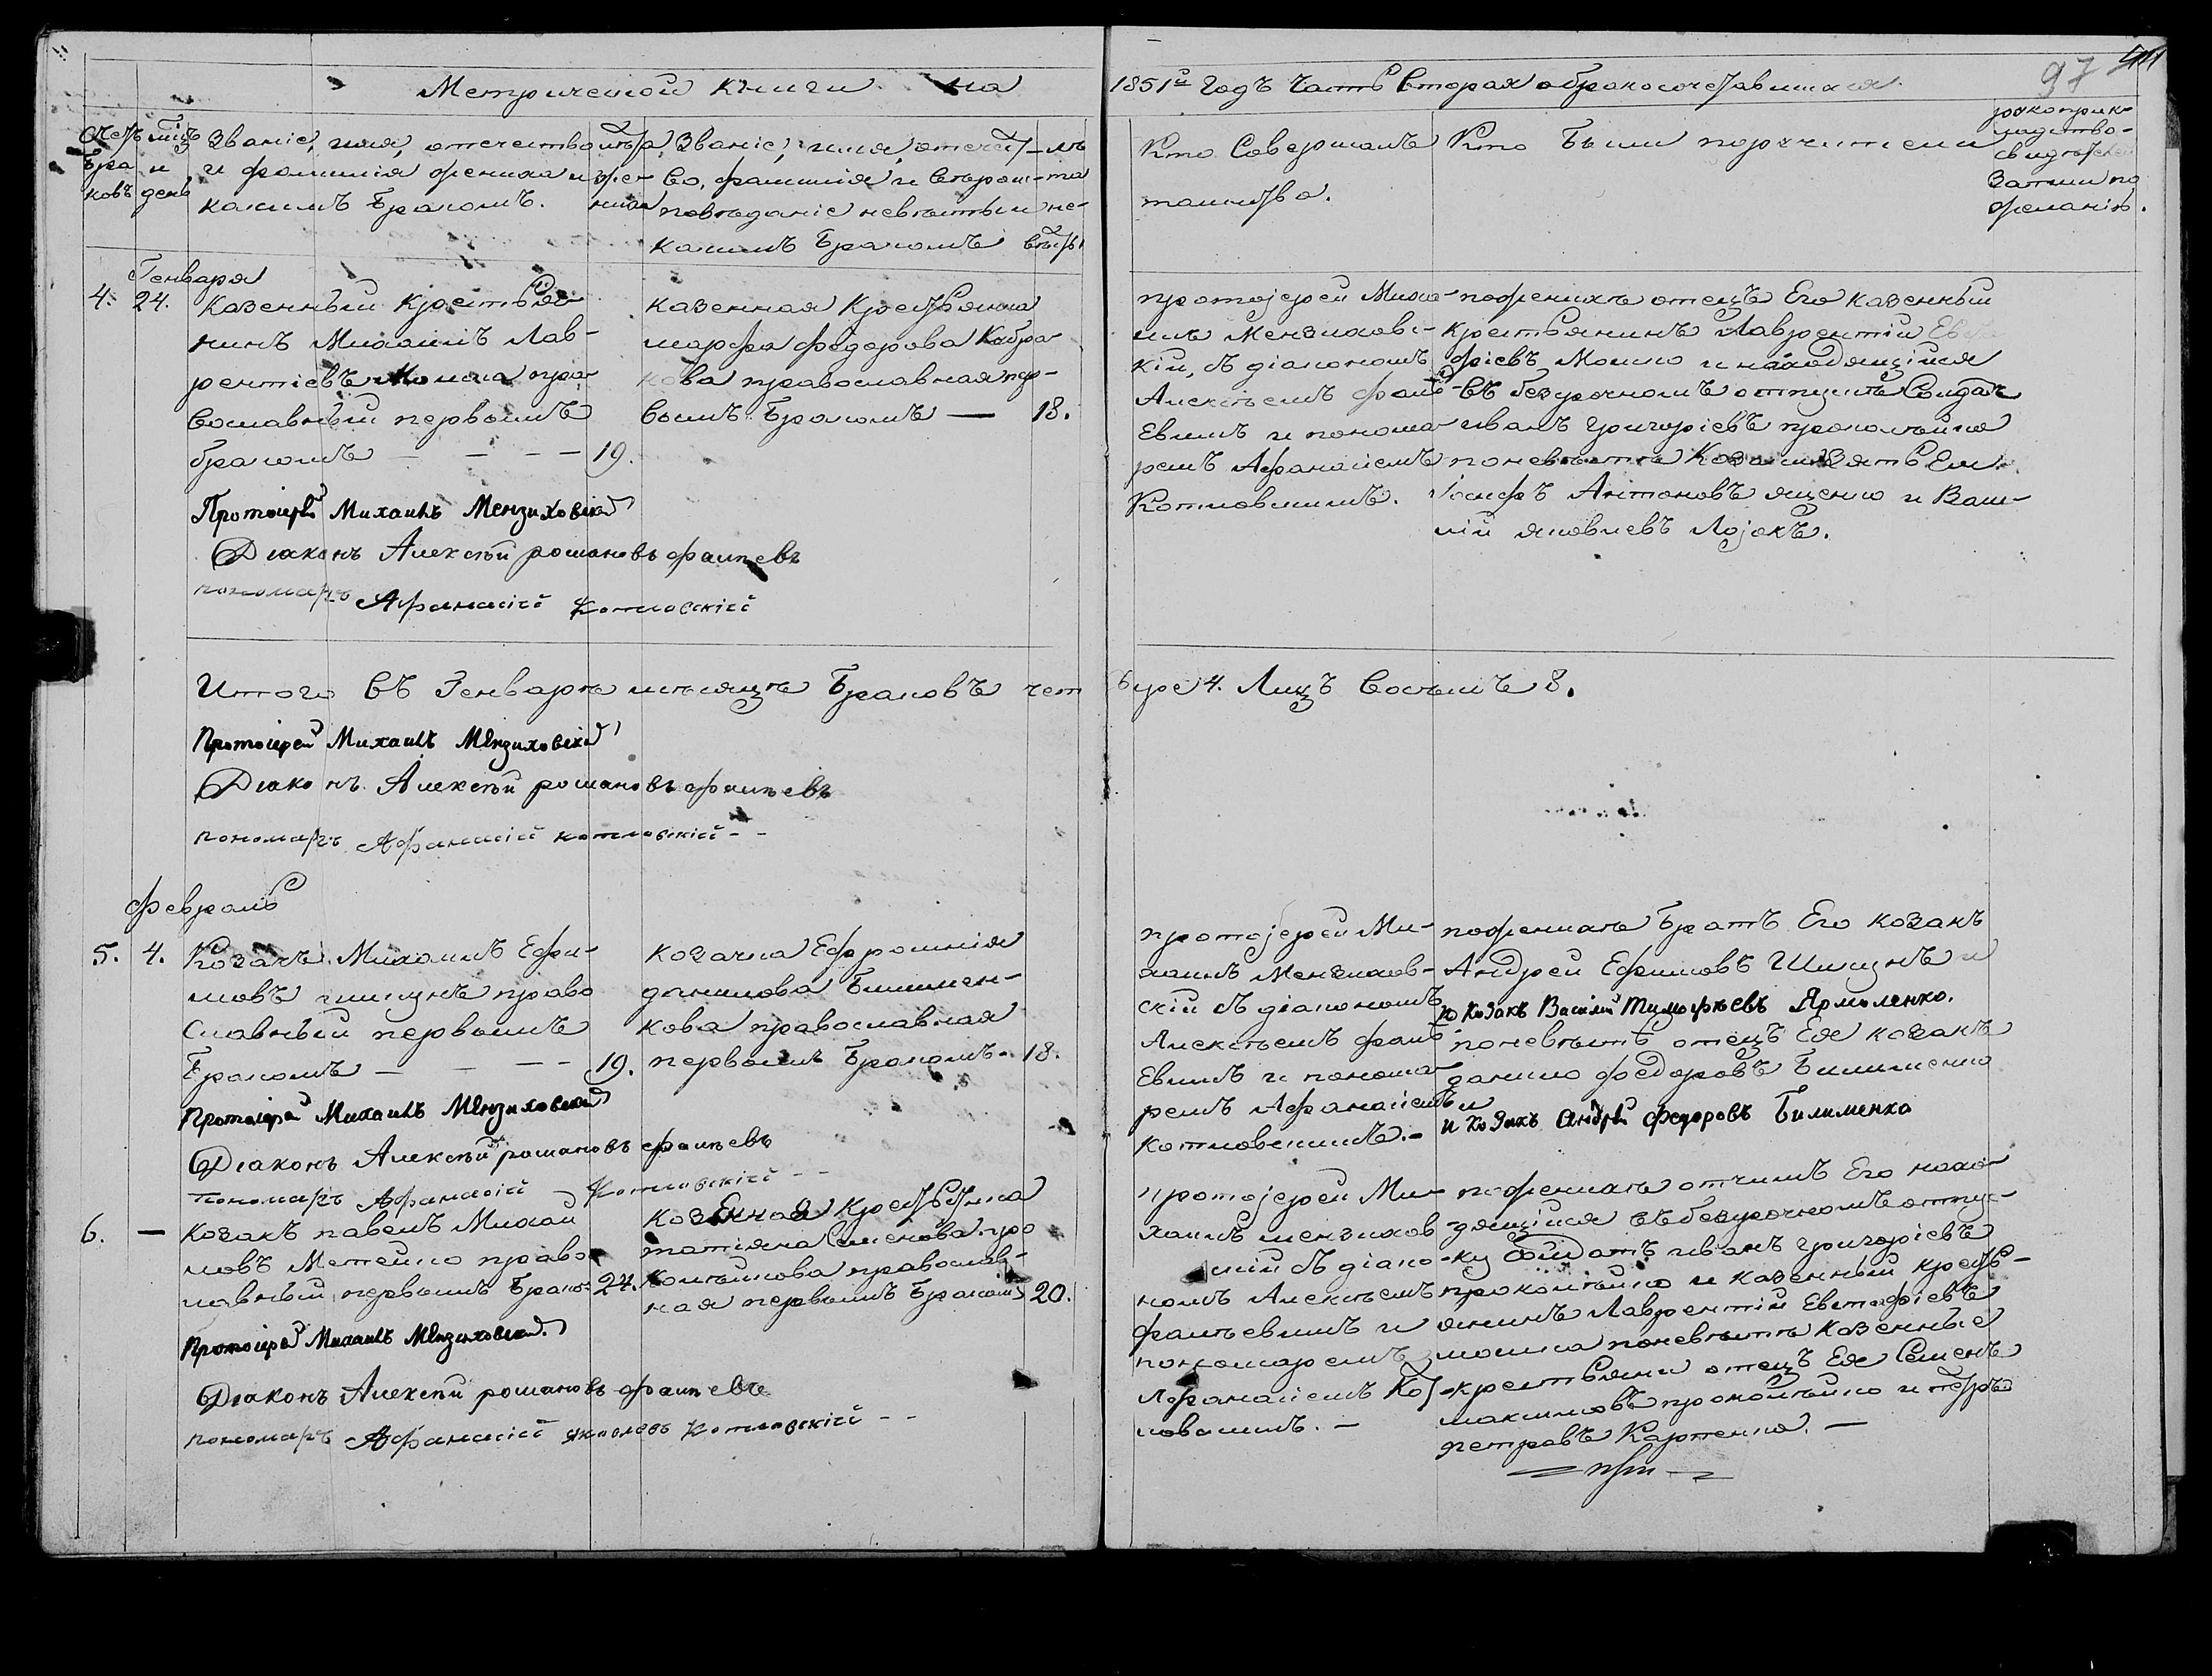 Метрической книги на 1851й Годъ Часть Вторая о бракосочетавшихся.
97
Счетъ браковъ
мцъ и день
Званіе, имя, отечество
и фамилія жениха и
какимъ бракомъ.
лѣта жениха
Званіе, имя, отечест-
во, фамилія и вѣроис-
повѣданіе невѣсты и
какимъ бракомъ
лѣта невѣсты
Кто Совершалъ
таинство.
Кто были поручители
рукоприк-
ладство
свидѣтелей
записи по
желанію.
Генваря
4. 24.
Казенный крестья-
нинъ Михаилъ Лав-
рентіевъ Момка пра-
вославный первымъ
бракомъ — — — 19.
казенная Крестьянка
марфа Федорова
православная пер-
вымъ бракомъ — 18.
протоjерей Миха-
илъ Мензиховс-
кій, съ діакономъ
Алексѣемъ фалѣ-
Евымъ и понома-
ремъ Афанасіемъ
Котловскимъ.
пожениху отецъ Его казенный
крестьянинъ Лаврентій
фіевъ Момко и находящійся
въ безсрочномъ отпуску Солдатъ
иванъ Григоріевъ прокопѣйко
поневѣстѣ зять Ея
Іосифъ Антоновъ яценко и Васи-
лій яковлевъ Лоjокъ.
Протоіерей Михаилъ Мензиховскій
Діаконъ Алексѣй романовъ фалѣевъ
пономарь Афанасій Котловскій
Итого въ Генварѣ мѣсяцѣ браковъ четыре 4. Лицъ Восемь 8.
Протоіерей Михаилъ Мензиховскій
Діаконъ Алексѣй романовъ фалѣевъ
пономарь Афанасій котловскій - -
Февраль
5. 4.
Козакъ Михаилъ Ефи-
мовъ шишунъ право
Славный первымъ
Бракомъ — — — 19.
козачка Ефросинія
данилова Билимен-
кова православная
первымъ бракомъ - 18.
протоjерей Ми-
хаилъ Мензихов-
скій съ діакономъ
Алексѣемъ фалѣ
Евымъ и понома-
ремъ Афанасіемъ
котловскимъ. -
пожениху братъ Его козакъ
Андрей Ефимовъ Шишунъ и
козакъ Василій Тимофѣевъ Ярмоленко.
поневѣстѣ отецъ Ея козакъ
данило Федоровъ Билименко
и
и козакъ Андрей Федоровъ Билименко
Протоіерей Михаилъ Мензиховскій
Діаконъ Алексѣй романовъ фалѣевъ
пономарь Афанасій Котловскій - -
6. —
Козакъ павелъ Михаи
ловъ Метейко право
лавный первымъ брако- 24.
Казенная Крестьянка
татіяна Семенова про
копѣйкова православ-
ная первымъ бракомъ 20.
протоjерей Ми-
хаилъ мензихов
скій съ діако-
номъ Алексѣемъ
фалѣевымъ и
пономаремъ
Афанасіемъ Кот
ловскимъ. —
пожениху отчимъ Его нахо-
дящійся въ безсрочномъ отпус-
ку Солдатъ иванъ григоріевъ
прокопѣйко и казенный крестья-
янинъ Лаврентій Евстафіевъ
момка поневѣстѣ казенные
крестьяни отецъ Ея Семенъ
максимовъ прокопѣйко и
петровъ Карпенко. —
Протоіерей Михаилъ Мензиховскій.
Діаконъ Алексѣй романовъ фалѣевъ
пономарь Афанасій яковлевъ Котловскій - -